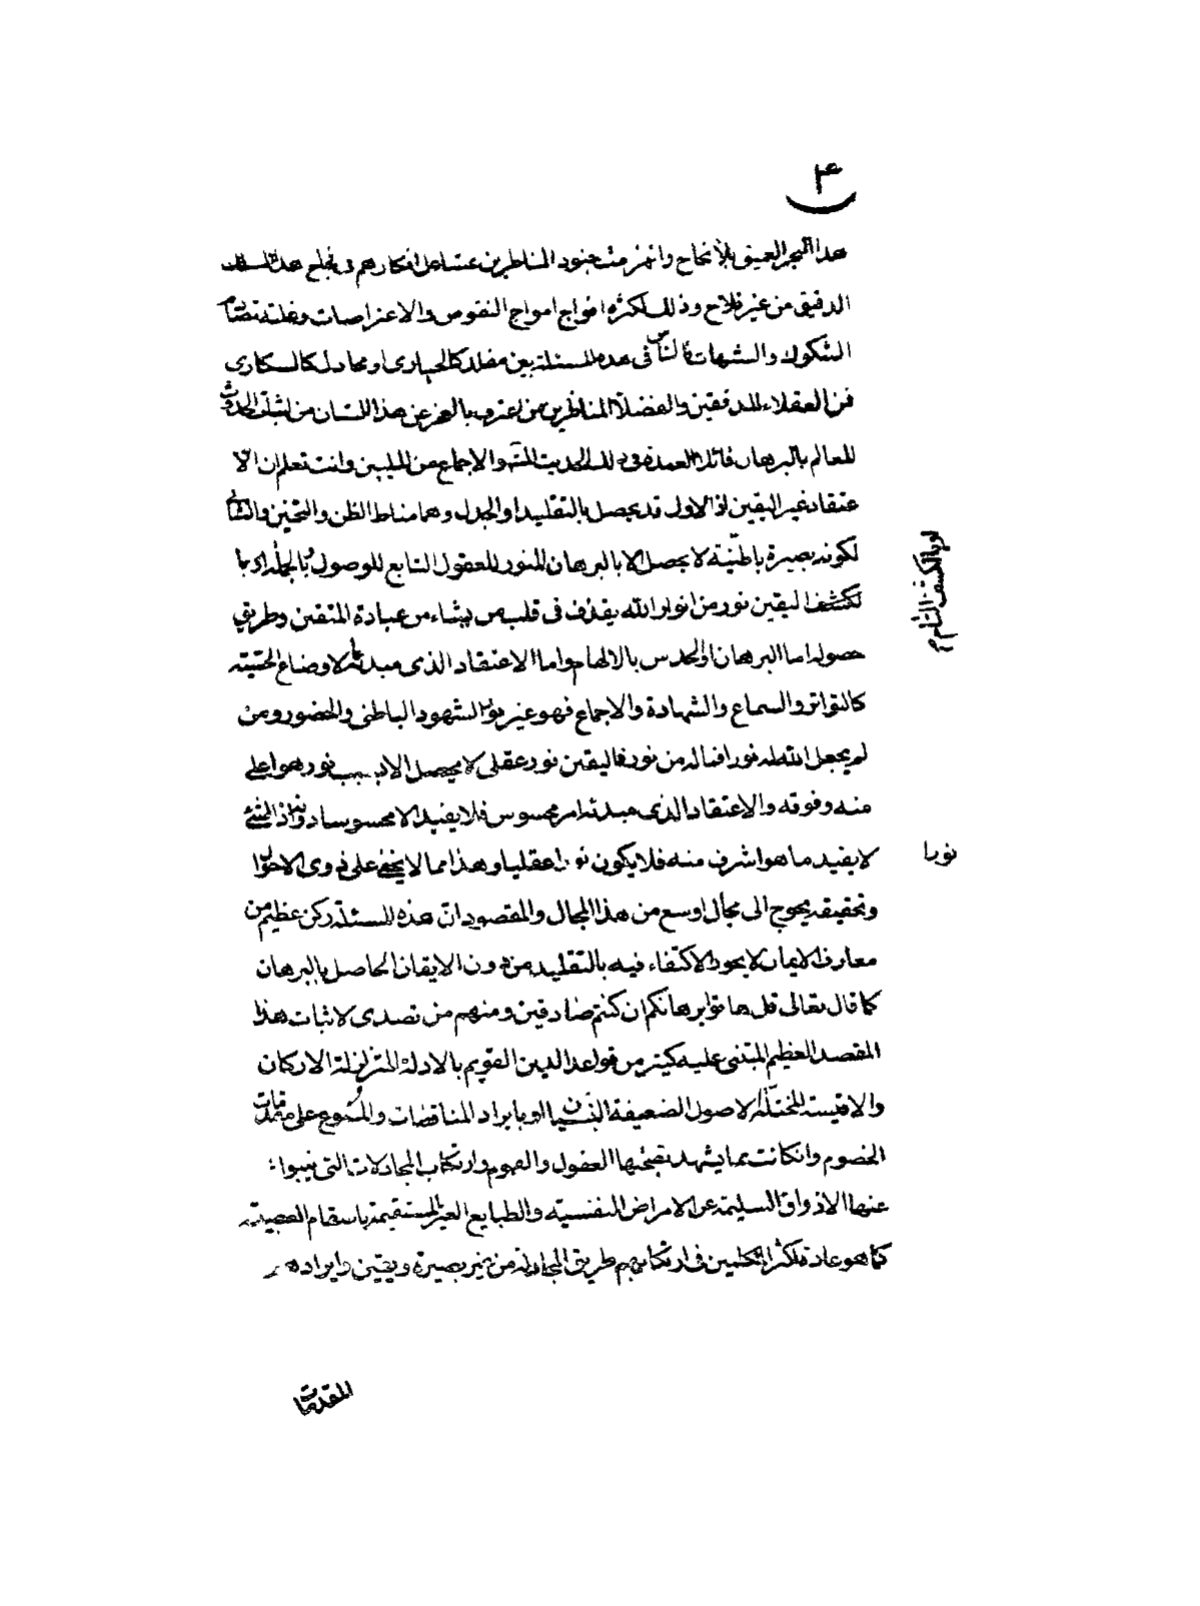 ٤
هذا البحر العميق بلا نجاح وانهزمت جنود الناظرين عساكر افكارهم فى فجاج هذا المسلك
الدقيق من غير فلاح وذلك لكثرة افواج امواج النقوض والاعتراضات وغلبة
الشكوك والشبهات فالناس فى هذه المسئلة بين مقلد كالحيارى او مجادل كالسكارى
فمن العقلاء المدققين والفضلاء المناظرين من اعترف بالعجز عن هذا الشان من اثبات الحدوث
للعالم بالبرهان قائلا العمدة فى ذلك الحديث المشهور والاجماع من المليين وانت تعلم ان الا
عتقاد غير اليقين اذ الاول قد يحصل بالتقليد او الجدل وهما مناط الظن والتخمين والثانى
لكونه بصيرة باطنية لا يحصل الا بالبرهان المنور للعقول التابع للوصول وبالجملة
لكشف اليقين نور من انوار الله يقذف فى قلب من يشاء من عباده المتقين وطريق
حصوله اما البرهان او الحدس بالالهام واما الاعتقاد الذى مبدئه الاوضاع الحسية
كالتواتر والسماع والشهادة والاجماع فهو غير نور الشهود الباطنى والحضور ومن
لم يجعل الله له نورا فما له من نور فاليقين نور عقلى لا يحصل الا بسبب نور هو اعلى
منه وفوقه والاعتقاد الذى مبدئه امر محسوس فلا يفيد الا محسوسا دونه اذ الشئ
لا يفيد ما هو اشرف منه فلا يكون نورا عقليا وهذا مما لا يخفى على ذوى الاحوال
وتحقيقه يحوج الى مجال اوسع من هذا المجال والمقصود ان هذه المسئلة ركن عظيم من
معارف الايمان لا يجوز الاكتفاء فيه بالتقليد من دون الايقان الحاصل بالبرهان
كما قال تعالى قل هاتوا برهانكم ان كنتم صادقين ومنهم من تصدى لاثبات هذا
المقصد العظيم المبتنى عليه كثير من قواعد الدين القويم بالادلة المتزلزلة الاركان
والاقيسة المختلة الاصول الضعيفة البنيان او بايراد المناقضات والمنوع على مقدمات
الخصوم وان كانت مما يشهد بصحتها العقول والفهوم وارتكاب المجادلات التى ينبوا
عنها الاذواق السليمة عن الامراض النفسية والطبايع الغير المستقيمة باسقام العصبية
كما هو عادة اكثر المتكلمين فى ارتكابهم طريق المجادلة من غير بصيرة ويقين وايرادهم
المقدمات
او بالكشف التام
نورا